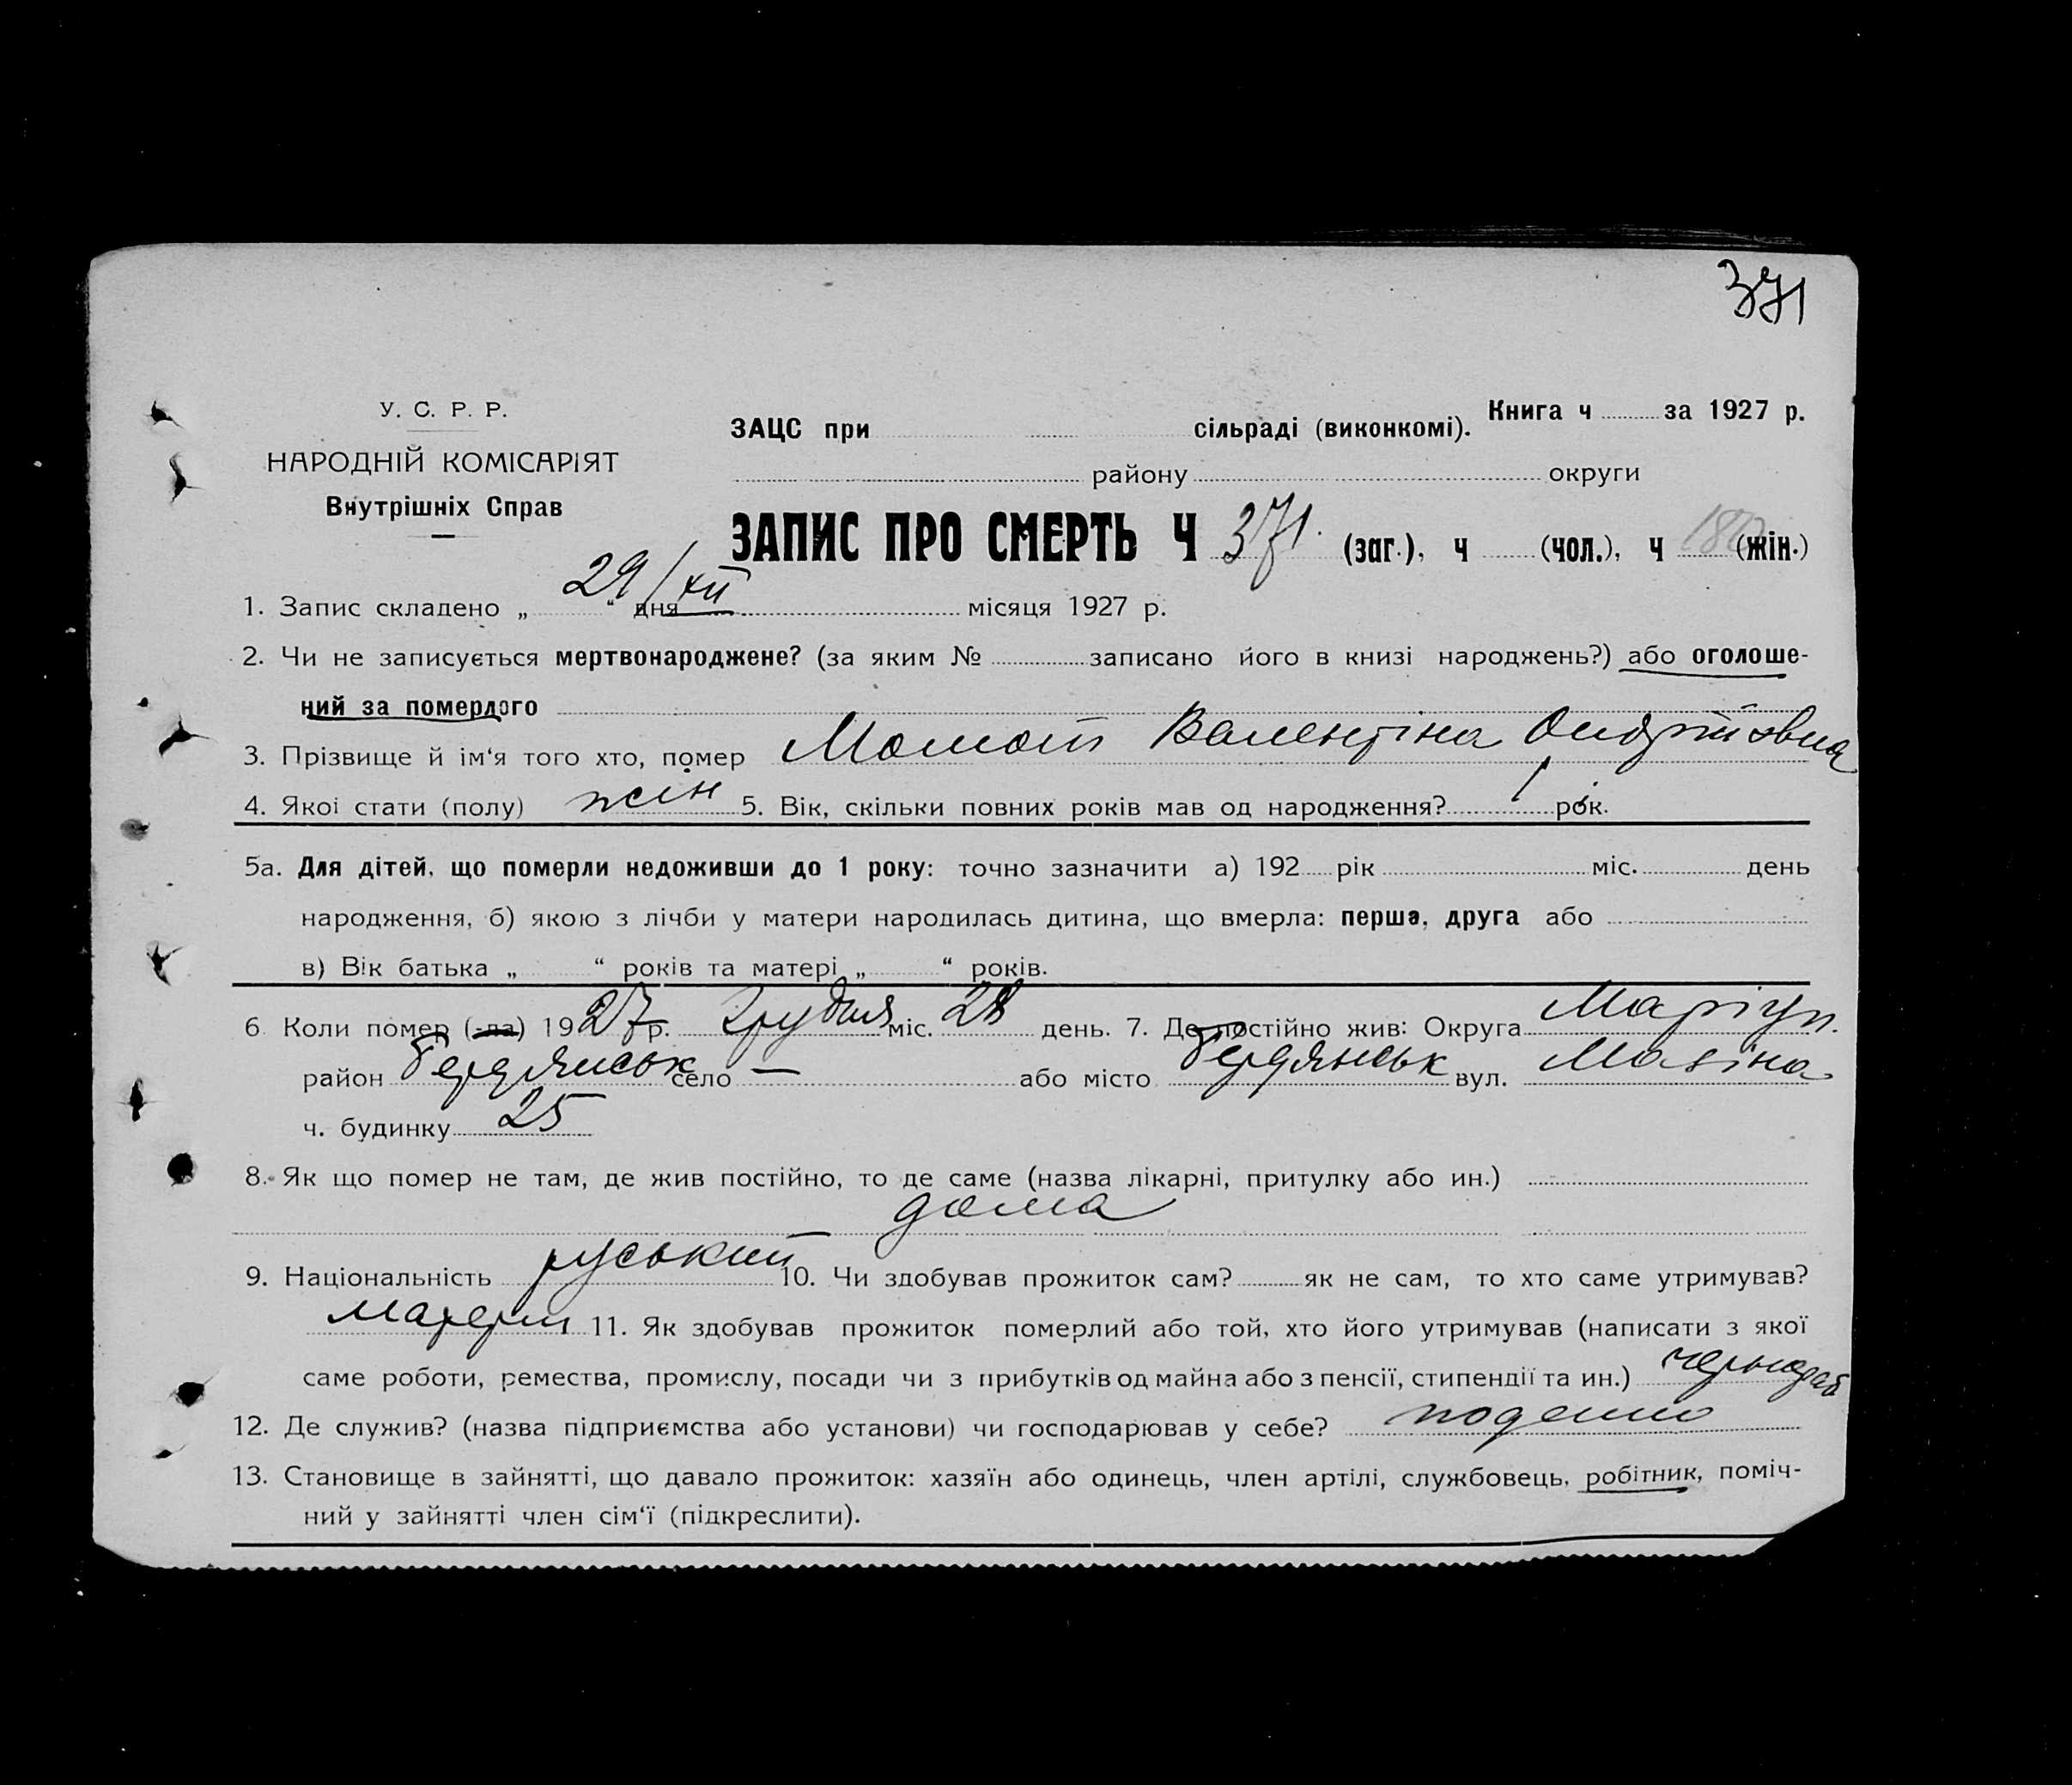 371
У. С. Р. Р.
НАРОДНІЙ КОМІСАРІЯТ
Внутрішніх Справ
Книга ч за 1927 р.
ЗАЦС при сільраді (виконкомі).
району округи
ЗАПИС ПРО СМЕРТЬ Ч 371. (заг.), ч (чол.), ч (жін.)
1. Запис складено „ 29/XII “ дня місяця 1927 р.
2. Чи не записується мертвонароджене? (за яким № записано його в книзі народжень?) або оголоше-
ний за помердого
3. Прізвище й ім‘я того хто, помер Момот Валентіна Андріївна
4. Якої стати (полу) жін 5. Вік, скільки повних років мав од народження? 1 рок.
5а. Для дітей, що померли недоживши до 1 року: точно зазначити а) 192 рік міс. день
народження, б) якою з лічби у матери народилась дитина, що вмерла: перша, друга або
в) Вік батька „ “ років та матері „ “ років.
6 Коли помер (-ла) 1927 р. Грудня міс. 28 день. 7. Де постійно жив: Округа Маріуп.
район Бердянськ село — або місто Бердянськ вул. Мазіна
ч. будинку 25
8. Як що помер не там, де жив постійно, то де саме (назва лікарні, притулку або ин.)
дома
9. Національність руський 10. Чи здобував прожиток сам? як не сам, то хто саме утримував?
матери 11. Як здобував прожиток померлий або той, хто його утримував (написати з якої
саме роботи, ремества, промислу, посади чи з прибутків од майна або з пенсії, стипендії та ин.) чорнораб
12. Де служив? (назва підприємства або установи) чи господарював у себе? поденно
13. Становище в зайнятті, що давало прожиток: хазяїн або одинець, член артілі, службовець, робітник, поміч-
ний у зайнятті член сім‘ї (підкреслити).